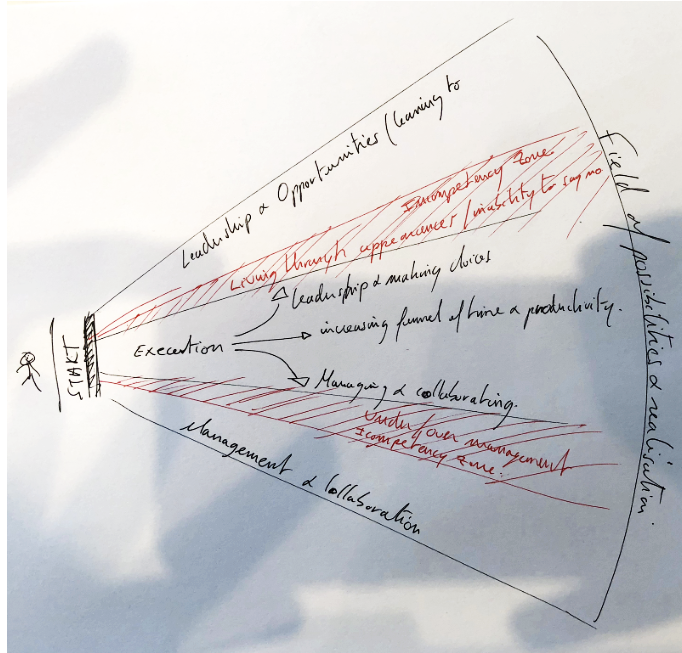 Leadership & Opportunities (learning to
Incompetency zone.
Living through appearances / inability to say no
leadership & making choices
Execution
increasing funnel of time & productivity.
Managing & collaborating.
Under/over management
Icompetency zone.
Management & Collaboration
START
Field of possibilities & realisation.